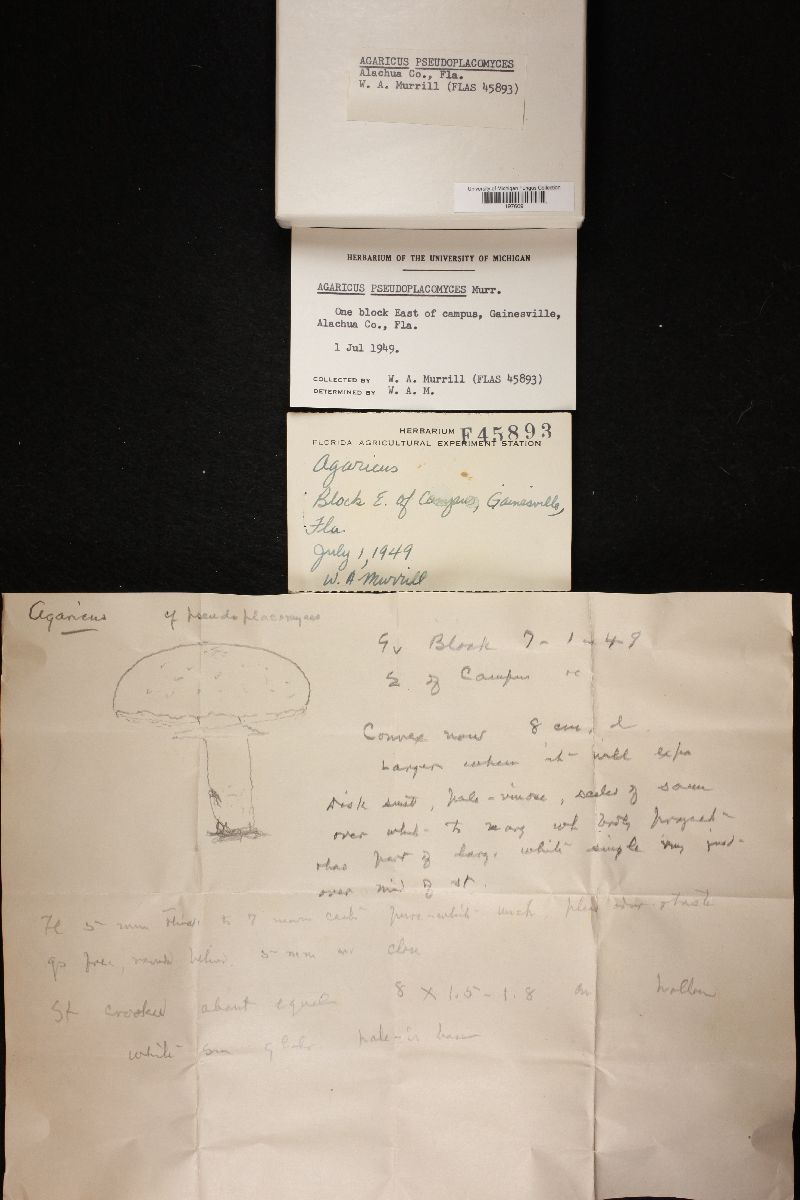 AGARICUS PSEUDOPLACOMYCES
Alachua Co., Fla.
W. A. Murrill (FLAS 45893)
University of Michigan Fungus Collection
197609
HERBARIUM OF THE UNIVERSITY OF MICHIGAN
AGARICUS PSEUDOPLACOMYCES Murr.
One block East of campus, Gainesville,
Alachua Co., Fla.
1 Jul 1949.
COLLECTED BY W. A. Murrill (FLAS 45893)
DETERMINED BY W. A. M.
HERBARIUM F45893
FLORIDA AGRICULTURAL EXPERIMENT STATION
Agaricus
Block E. of Campus, Gainesville,
Fla.
July 1, 1949
W. A Murrill
Agaricus cf pseudoplacomyces
Gv Block 7-1-49
E of Campus
Convex now 8 cm. d
Larger when it will expa
Disk smooth, pale-vinose, scales of same
over white to marg
part of larg. white simple
over mid of st.
5 mm thick to 7 mm
free, 5 mm close
St crooked about equal 8 X 1.5-1.8 hollow
white sm glabr